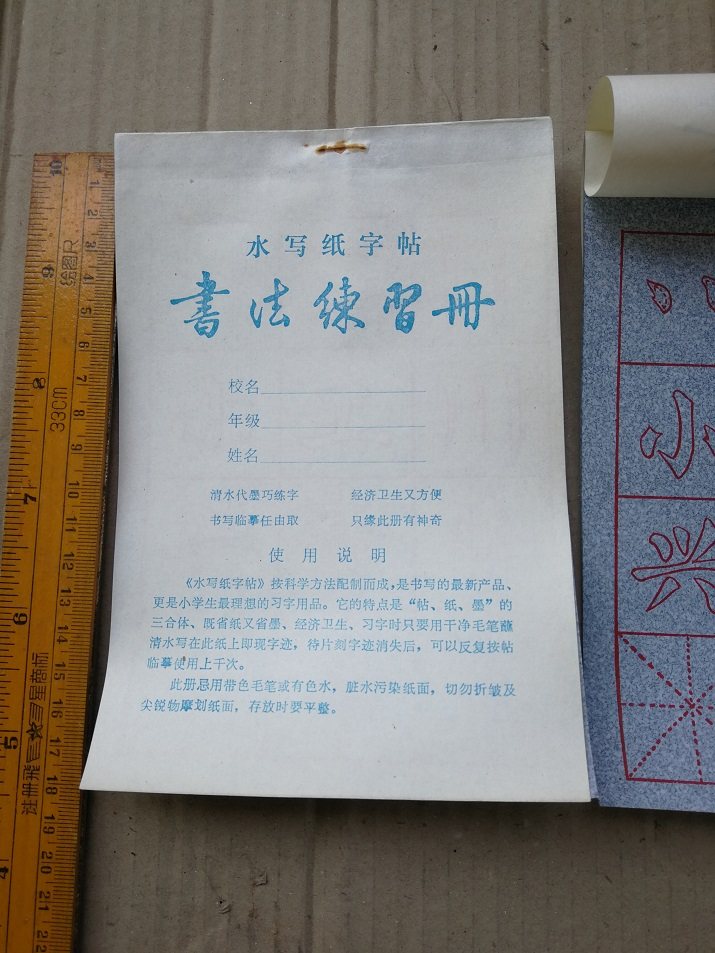 水写纸字帖
書法練習冊
校名
年级
姓名
清水代墨巧练字 经济卫生又方便
书写临摹任由取 只缘此册有神奇
使用说明
《水写纸字帖》按科学方法配制而成，是书写的最新产品、
更是小学生最理想的习字用品。它的特点是“帖、纸、墨”的
三合体、既省纸又省墨、经济卫生、习字时只要用干净毛笔蘸
清水写在此纸上即现字迹，待片刻字迹消失后，可以反复按帖
临摹使用上千次。
此册忌用带色毛笔或有色水，脏水污染纸面，切勿折皱及
尖锐物摩划纸面，存放时要平整。
小
兴
10
9
8
7
6
5
4
绘图R
33cm
注册飞三星商标
1
2
3
4
5
6
7
8
9
10
11
12
13
14
15
16
17
18
19
20
21
22